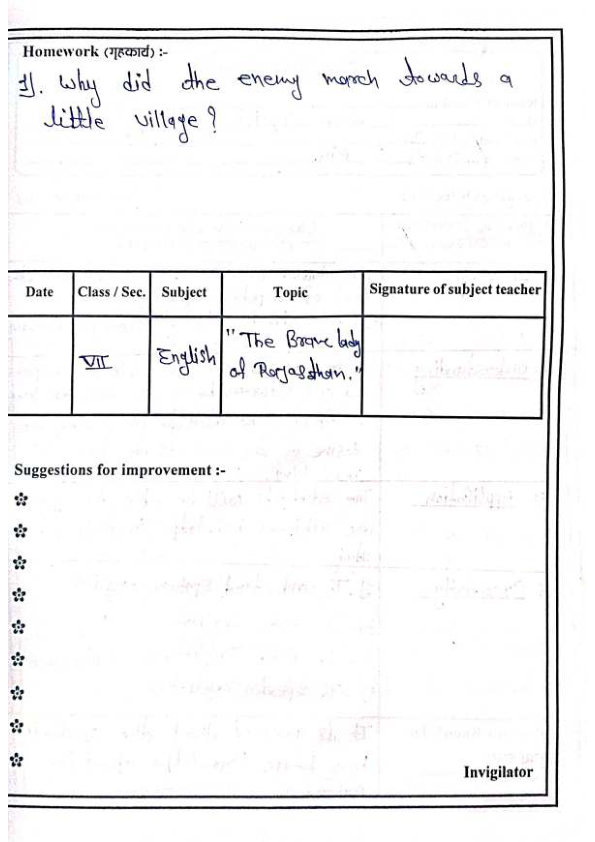 Homework (गृहकार्य) :-
1). Why did the enemy march towards a
little village?
Date Class / Sec. Subject Topic Signature of subject teacher
VII English "The Brave lady
of Rajasthan."
Suggestions for improvement :-
Invigilator